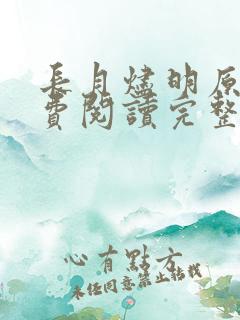 長月燼明原
費閱讀完整
心有點方
未经同意禁止转载